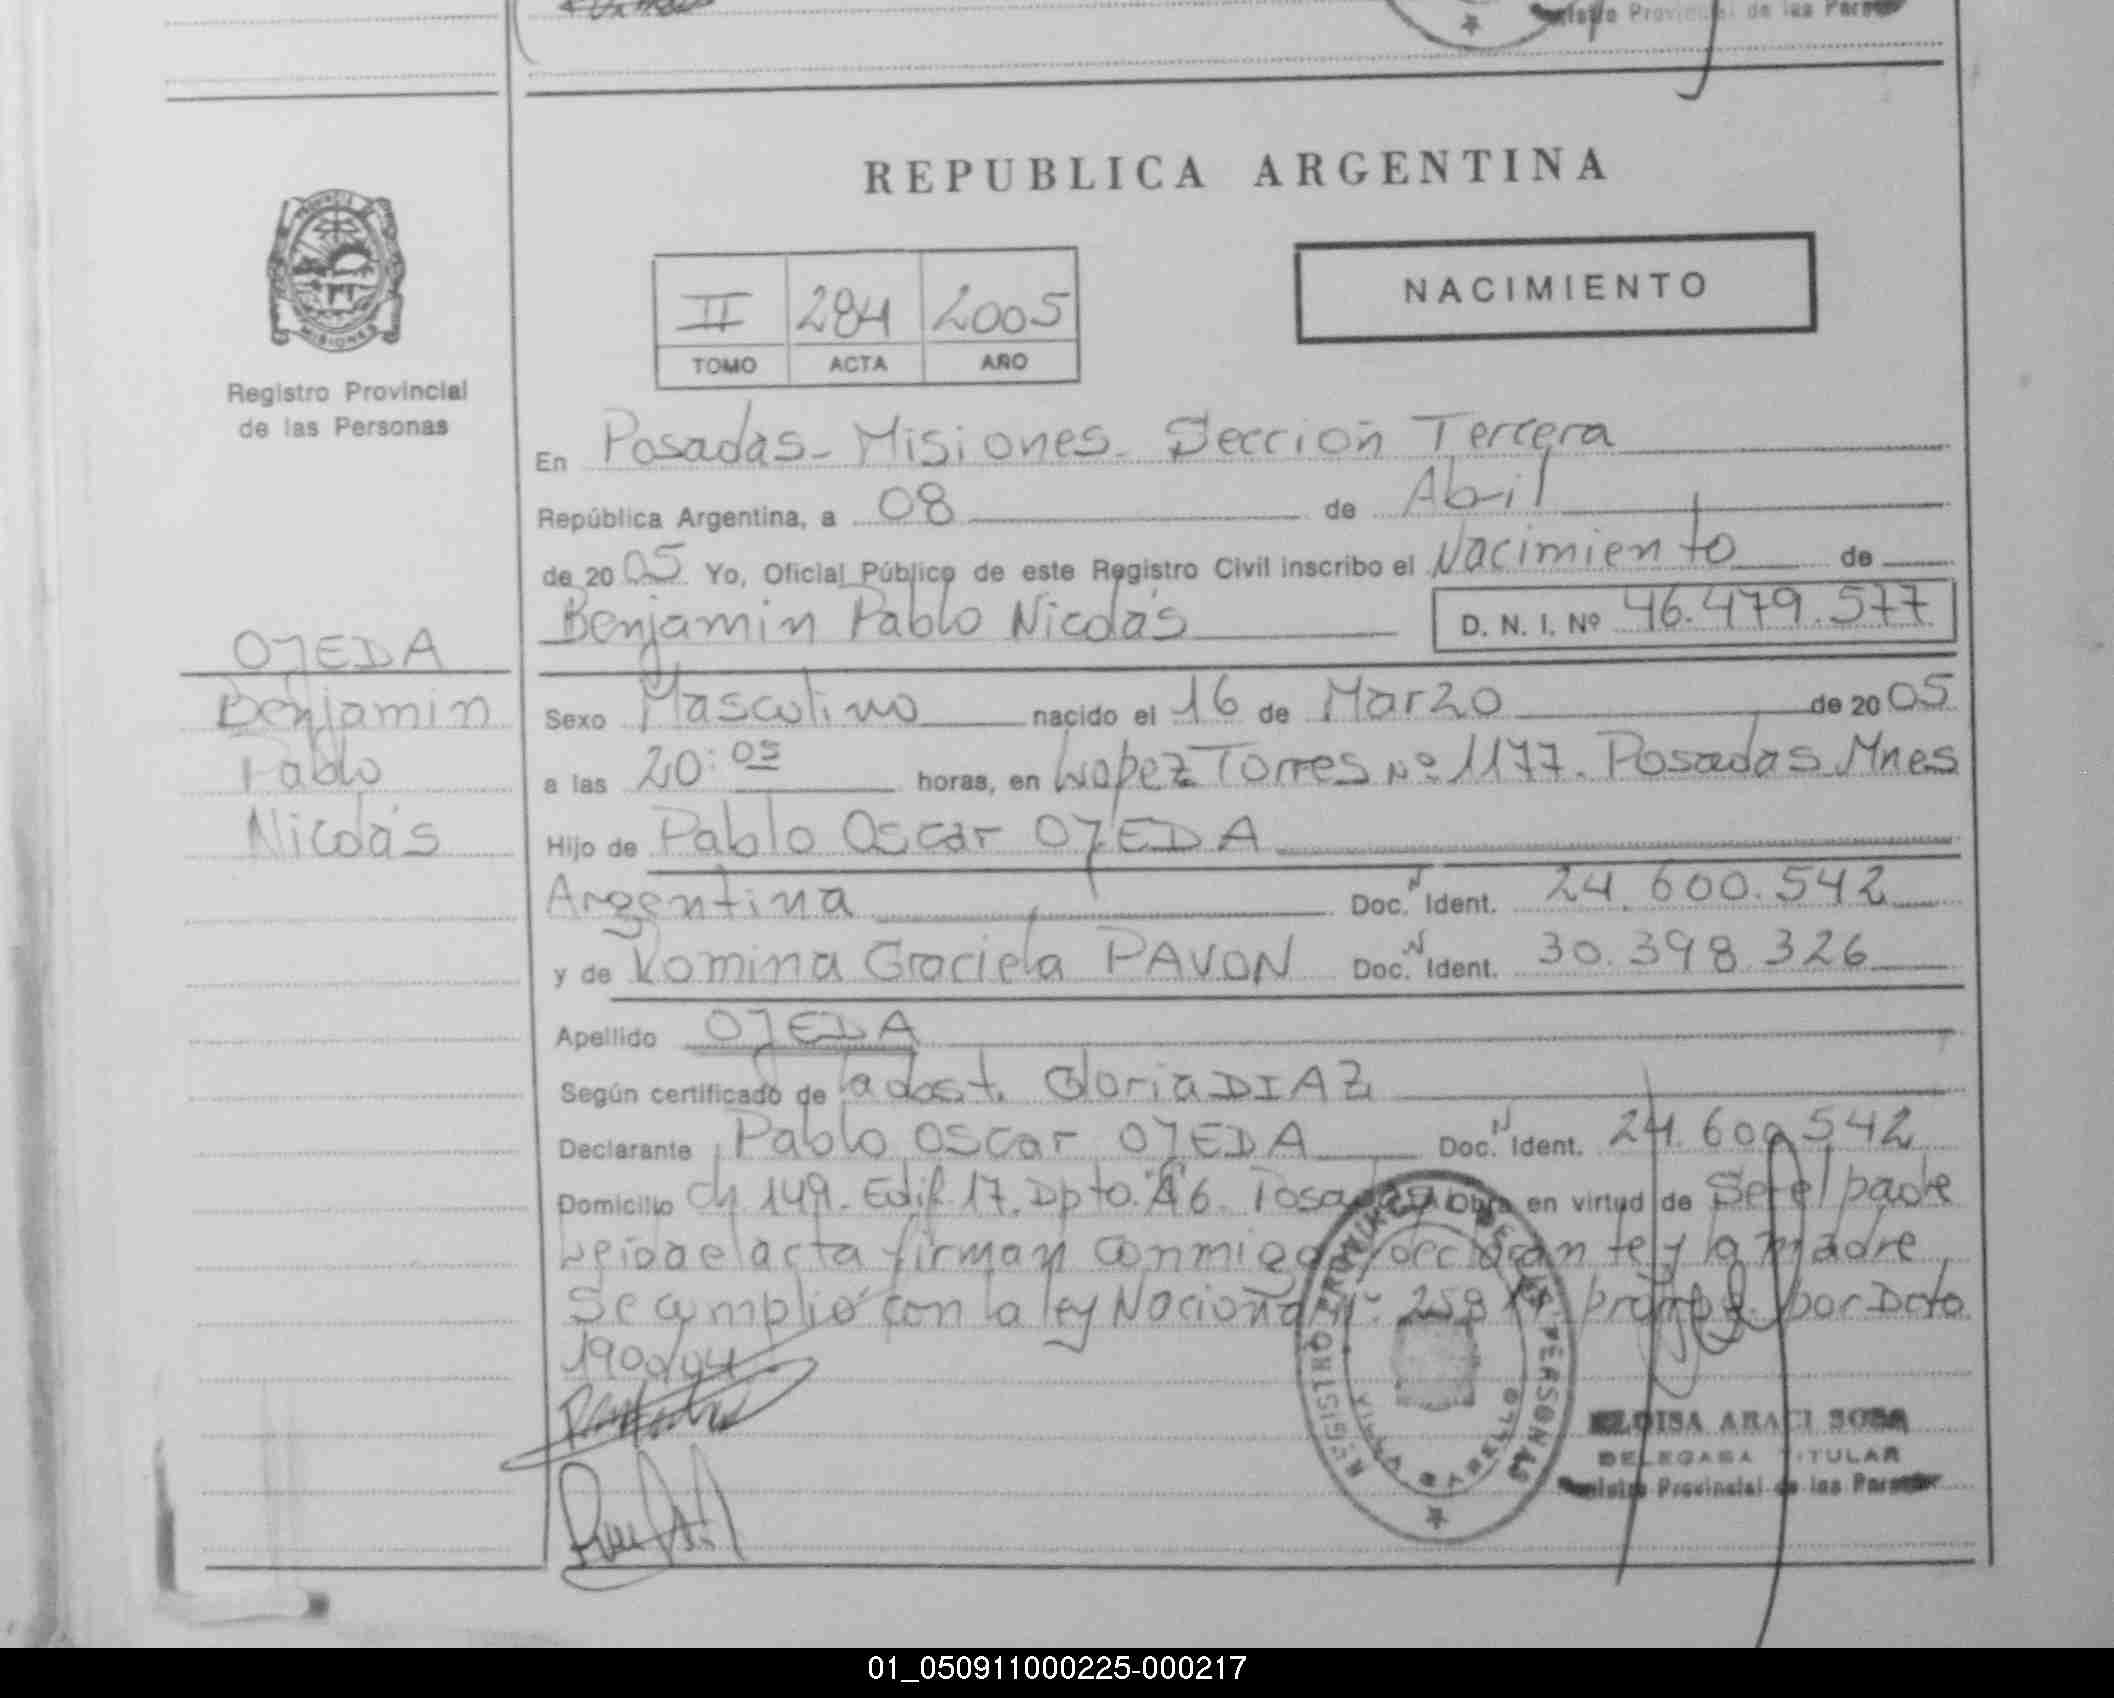 Registro Provincial de las Personas
REPUBLICA ARGENTINA
PROVINCIA DE
MISIONES
Registro Provincial
de las Personas
II 284 2005
TOMO ACTA AÑO
NACIMIENTO
En Posadas - Misiones - Sección Tercera
República Argentina, a 08 de Abril
de 2005 Yo, Oficial Público de este Registro Civil inscribo el Nacimiento de
Benjamin Pablo Nicolás D. N. I. Nº 46.479.577
OJEDA
Benjamin
Pablo
Nicolás
Sexo Masculino nacido el 16 de Marzo de 2005
a las 20:05 horas, en Lopez Torres Nº 1177. Posadas Mnes
Hijo de Pablo Oscar OJEDA
Argentina Doc. N Ident. 24.600.542
y de Romina Graciela PAVON Doc. N Ident. 30.398.326
Apellido OJEDA
Según certificado de la obst. Gloria DIAZ
Declarante Pablo Oscar OJEDA Doc. N Ident. 24.600.542
Domicilio Ch 149. Edif. 17. Dpto. "A" 6. Posadas Obra en virtud de Ser el padre
Leida el acta firman conmigo declarante y la madre
Se cumplió con la ley Nacional Nº por Dcto.
1900/04
REGISTRO PROVINCIAL DE LAS PERSONAS
VILLA CABELLO
ELOISA ARACI SOSA
DELEGADA TITULAR
Registro Provincial de las Personas
01_050911000225-000217